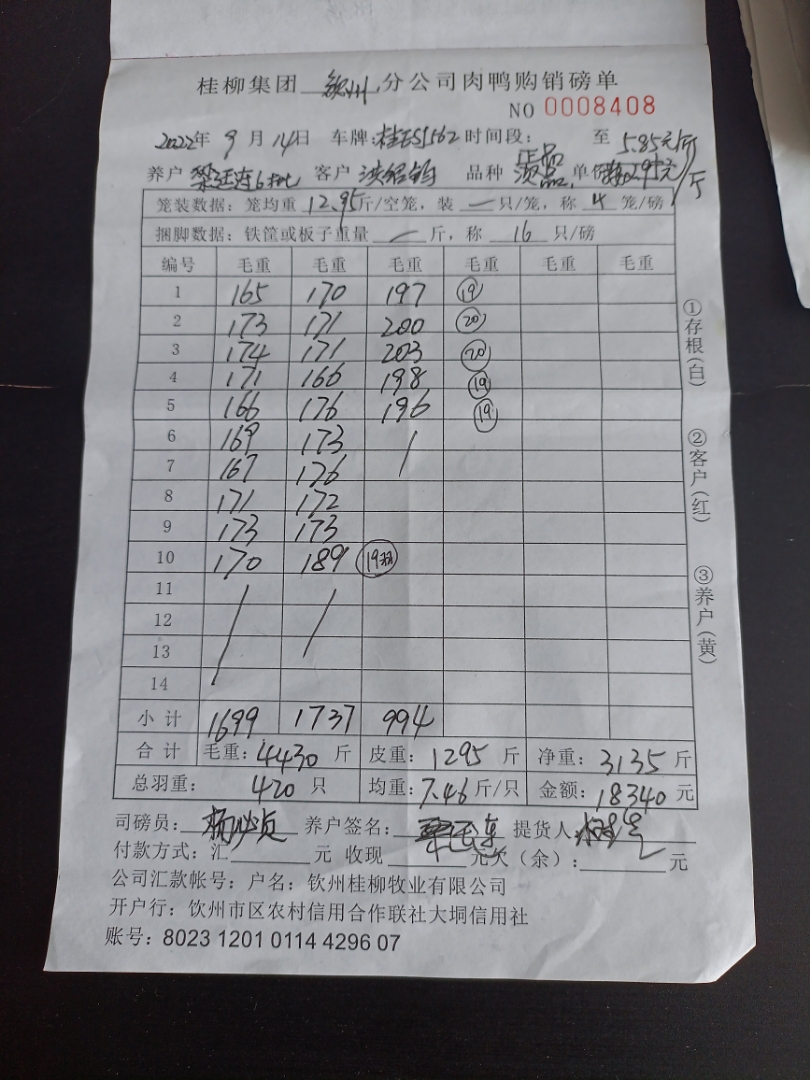 桂柳集团 钦州 分公司肉鸭购销磅单
NO 0008408
2022年 9 月 14日 车牌: 桂 S1562 时间段: 至 5.85元/斤
养户 6批 客户 洪绍钧 品种 正品 单价 元/斤
笼装数据: 笼均重 12.95斤/空笼, 装 一 只/笼, 称 4 笼/磅
捆脚数据: 铁筐或板子重量 / 斤, 称 16 只/磅
编号 毛重 毛重 毛重 毛重 毛重 毛重
1 165 170 197 19
2 173 171 200 20
3 174 171 203 20
4 171 166 198 19
5 166 176 196 19
6 169 173 /
7 167 176
8 171 172
9 173 173
10 170 189 19羽
11 / /
12
13
14
小计 1699 1737 994
合计 毛重: 4430 斤 皮重: 1295 斤 净重: 3135 斤
总羽重: 420 只 均重: 7.46斤/只 金额: 18340 元
司磅员: 养户签名: 提货人:
付款方式: 汇 元 收现 元欠(余): 元
公司汇款帐号: 户名: 钦州桂柳牧业有限公司
开户行: 钦州市区农村信用合作联社大垌信用社
账号: 8023 1201 0114 4296 07
①存根(白)
②客户(红)
③养户(黄)